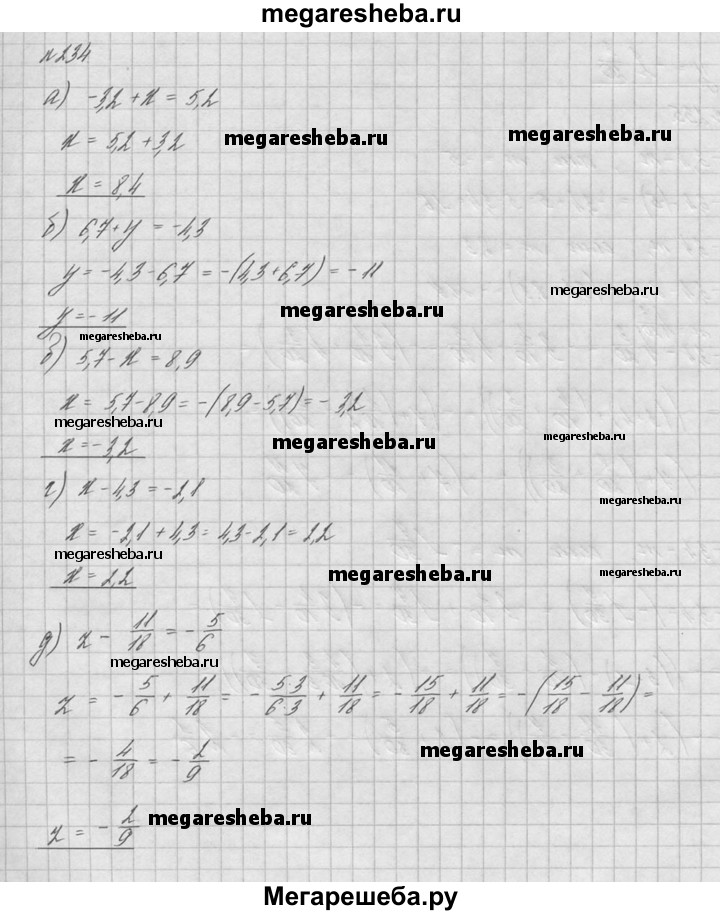 megaresheba.ru
№234
а) -3,2 + x = 5,2
x = 5,2 + 3,2
megaresheba.ru
megaresheba.ru
x = 8,4
б) 6,7 + y = -4,3
y = -4,3 - 6,7 = -(4,3 + 6,7) = -11
megaresheba.ru
y = -11
megaresheba.ru
megaresheba.ru
в) 5,7 - x = 8,9
x = 5,7 - 8,9 = -(8,9 - 5,7) = -3,2
megaresheba.ru
x = -3,2
megaresheba.ru
megaresheba.ru
г) x - 4,3 = -2,1
megaresheba.ru
x = -2,1 + 4,3 = 4,3 - 2,1 = 2,2
megaresheba.ru
x = 2,2
megaresheba.ru
megaresheba.ru
д) z - 11/18 = -5/6
megaresheba.ru
z = -5/6 + 11/18 = -5·3/6·3 + 11/18 = -15/18 + 11/18 = -(15/18 - 11/18) =
= -4/18 = -2/9
megaresheba.ru
z = -2/9
megaresheba.ru
Мегарешеба.ру